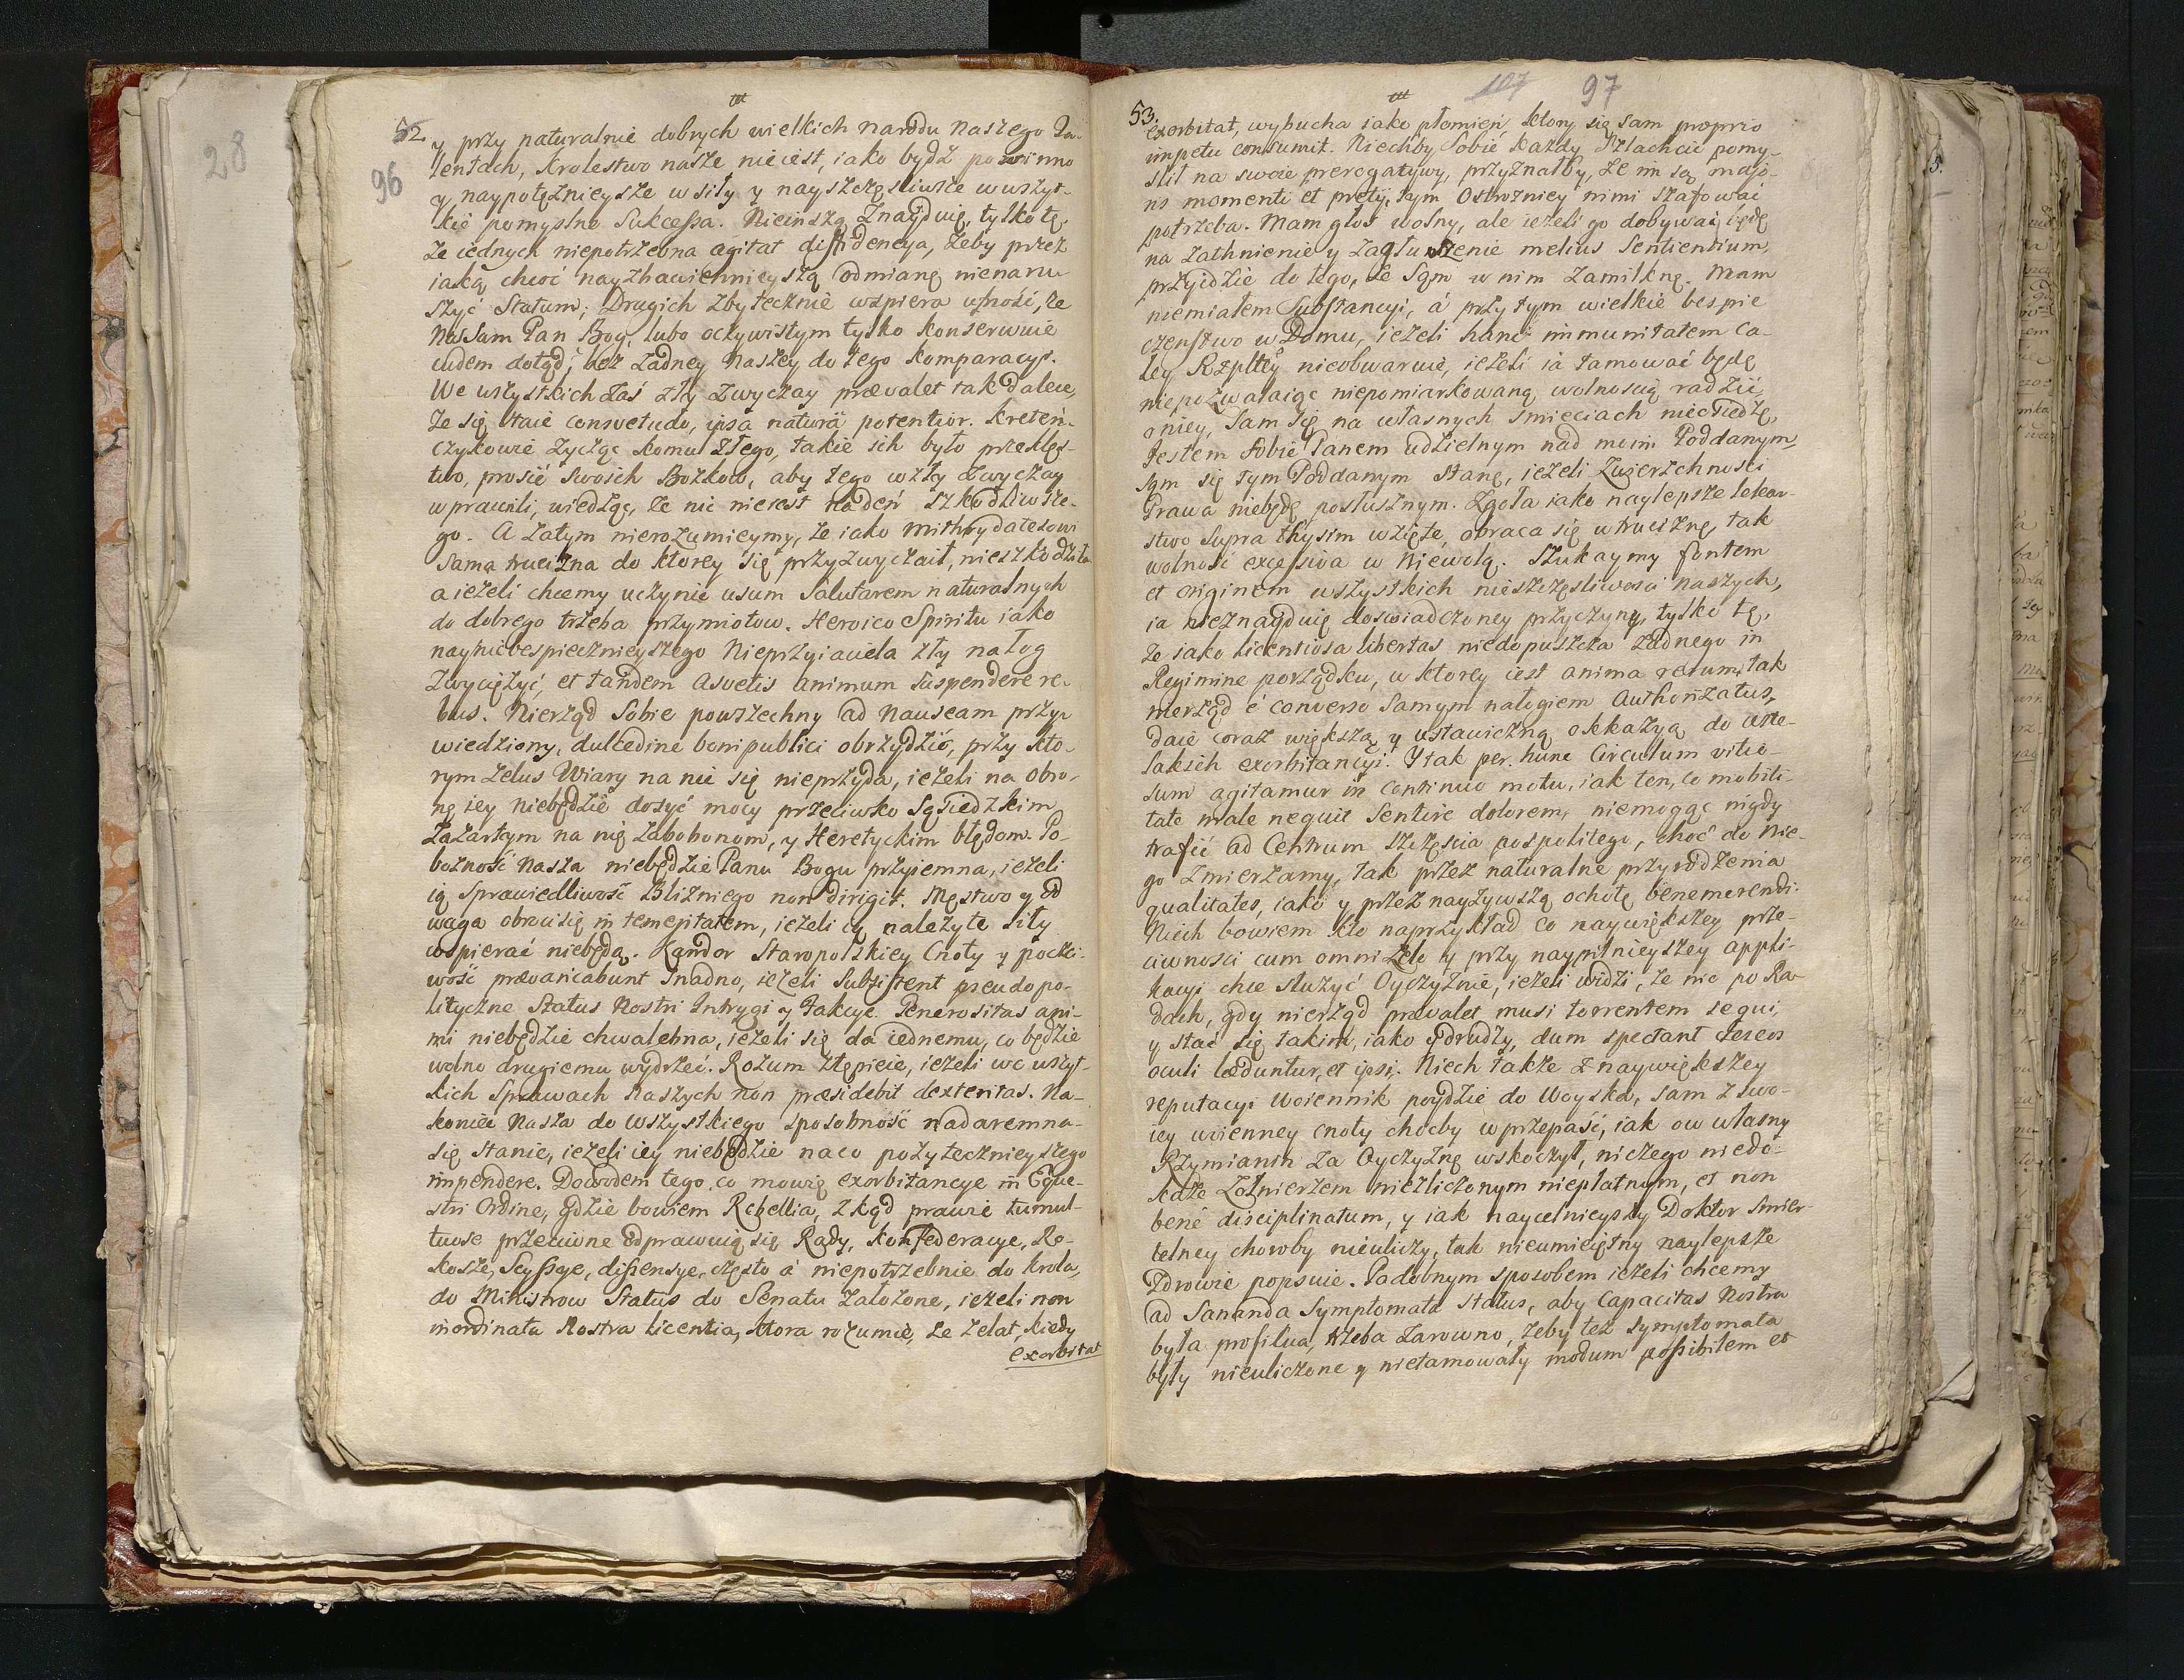 28
52.
96
y przy naturalnie dobrych wielkich narodu naszego Ta-
lentach, Krolestwo nasze nieiest, iako bydź powinno
y naypotężnieysze w siły y nayszczęsliwsze w wszyt-
kie pomyslne Sukcessa. Nieinszą Znayduię, tylko tę,
że iednych niepotrzebna agitat diffidencya, żeby przez
iaką choć nayzbawiennieyszą odmianę nienaru-
szyć Statum; Drugich zbytecznie wspiera ufność, że
Nas Sam Pan Bog, lubo oczywistym tylko konserwuie
cudem dotąd, bez żadney Naszey do tego komparacyi.
We wszystkich zaś zły zwyczay prævalet tak dalece,
że się staie consvetudo, ipsa naturâ potentior. Kreteń-
czykowie życząc komu złego, takie ich było przeklęs-
two, prosić swoich Bożkow, aby tego w zły zwyczay
wprawili, wiedząc, że nic nieiest nadeń szkodliwsze-
go. A zatym nierozumieymy, że iako Mithrydatesowi
sama trucizna do ktorey się przyzwyczaił, nieszkodziła
a ieżeli chcemy uczynić usum Salutarem naturalnych
do dobrego trzeba przymiotow. Heroico Spiritu iako
nayniebespiecznieyszego Nieprzyiaciela zły nałog
Zwyciężyć, et tandem asvetis animum suspendere re-
bus. Nierząd Sobie powszechny ad nauseam przy-
wiedziony, dulcedine boni publici obrzydzić, przy kto-
rym Zelus Wiary na nic się nieprzyda, ieżeli na obro-
nę iey niebędzie dosyć mocy przeciwko Sąsiedzkim
Zażartym na nię Zabobonom, y Heretyckim błędom. Po-
bożność nasza niebędzie Panu Bogu przyiemna, ieżeli
ią Sprawiedliwość Bliźniego non dirigit. Męstwo y od
waga obroci się in temeritatem, ieżeli ią należyte siły
wspierać niebędą. Kandor Staropolskiey Cnoty y poczci-
wość prævaricabunt snadno, ieżeli Subsistent pseudopo-
lityczne Status Nostri Intrygi y fakcye. Generositas ani-
mi niebędzie chwalebna, ieżeli się da iednemu, co będzie
wolno drugiemu wydrzeć. Rozum Stępieie, ieżeli we wszyt-
kich Sprawach naszych non præsidebit dexteritas. Na-
koniec Nasza do wszystkiego sposobność nadaremna-
się stanie, ieżeli iey niebędzie na co pożytecznieyszego
impendere. Dowodem tego co mowię exorbitancye in Eque-
stri Ordine, gdzie bowiem Rebellia, zkąd prawie tumul-
tuose przeciwne odprawuią się Rady, Konfederacye, Ro-
kosze, Scyssye, dissensye, często á niepotrzebnie do Krola,
do Ministrow Status do Senatu Założone, ieżeli non
inordinata Nostra licentia, ktora rozumie, że zelat, kiedy
exorbitat
107 97
53.
exorbitat, wybucha iako płomień, ktory się sam proprio
impetu consumit. Niechby Sobie każdy Szlachcic pomy-
slił na swoie prerogatywy, przyznałby, że im są majo-
ris momenti et pretij, tym Ostrożniey nimi szafować
potrzeba. Mam głos wolny, ale ieżeli go dobywać będę
na Zathnienie y Zagłuszenie melius Sentientium,
przyidzie do tego, że Sąm w nim Zamilknę. Mam
niemiałem Substancyi, á przy tym wielkie bespie
czeństwo w Domu, ieżeli hanc immunitatem ca-
łey Rzpltey nieobwaruię, ieżeli ia tamować będę
niepozwalaiąc niepomiarkowaną wolnoscią radzić
o niey, sam się na własnych smieciach nieosiedzę.
Jestem sobie Panem udzielnym nad moim Poddanym,
Sąm się tym Poddanym stanę, ieżeli Zwierzchności
Prawa niebędę posłusznym. Zgoła iako naylepsze lekar-
stwo supra thysim wzięte, obraca się w truciznę, tak
wolność excessiva w Niewolą. Szukaymy fontem
et originem wszystkich nieszczęsliwości naszych,
ia nieznayduię doswiadczoney przyczyny, tylko tę,
że iako licentiosa libertas niedopuszcza żadnego in
Regimine porządku, w ktorey iest anima rerum, tak
nierząd é converso samym nałogiem Authorizatus,
daie coraz większą y ustawiczną okkazyą do wsze-
lakich exorbitancyi. Y tak per hunc Circulum vitio-
sum agitamur in continuo motu, iak ten, co mobili-
tate male nequit Sentire dolorem, niemogąc nigdy
trafić ad Centrum Szczęscia pospolitego, choć do nie-
go zmierzamy, tak przez naturalne przyrodzenia
qualitates, iako y przez nayżywszą ochotę benemerendi.
Niech bowiem kto naprzykład co naywiększey prze-
ciwnosci cum omni Zelo y przy naypilnieyszey appli-
kacyi chce służyć Oyczyźnie, ieżeli widzi, że nic po Ra-
dach, gdy nierząd prævalet, musi torrentem sequi,
y stać się takim, iako y drudzy, dum spectant læsos
oculi læduntur, et ipsi. Niech także z naywiększey
reputacyi Woiennik poydzie do Woyska, sam z swo-
iey wienney cnoty choćby w przepaść, iak ow własny
Rzymianin Za Oyczyznę wskoczył, niczego niedo-
każe Zołnierzem niezliczonym niepłatnym, et non
bené disciplinatum, y iak naycelnieyszy Doktor Smier-
telney choroby nieuliczy, tak nieumieiętny naylepsze
Zdrowie popsuie. Podobnym sposobem ieżeli chcemy
ad Sananda Symptomata Status, aby Capacitas Nostra
była profilua, trzeba zarowno, żeby też Symptomata
były nieuliczone y nietamowały modum possibilem et